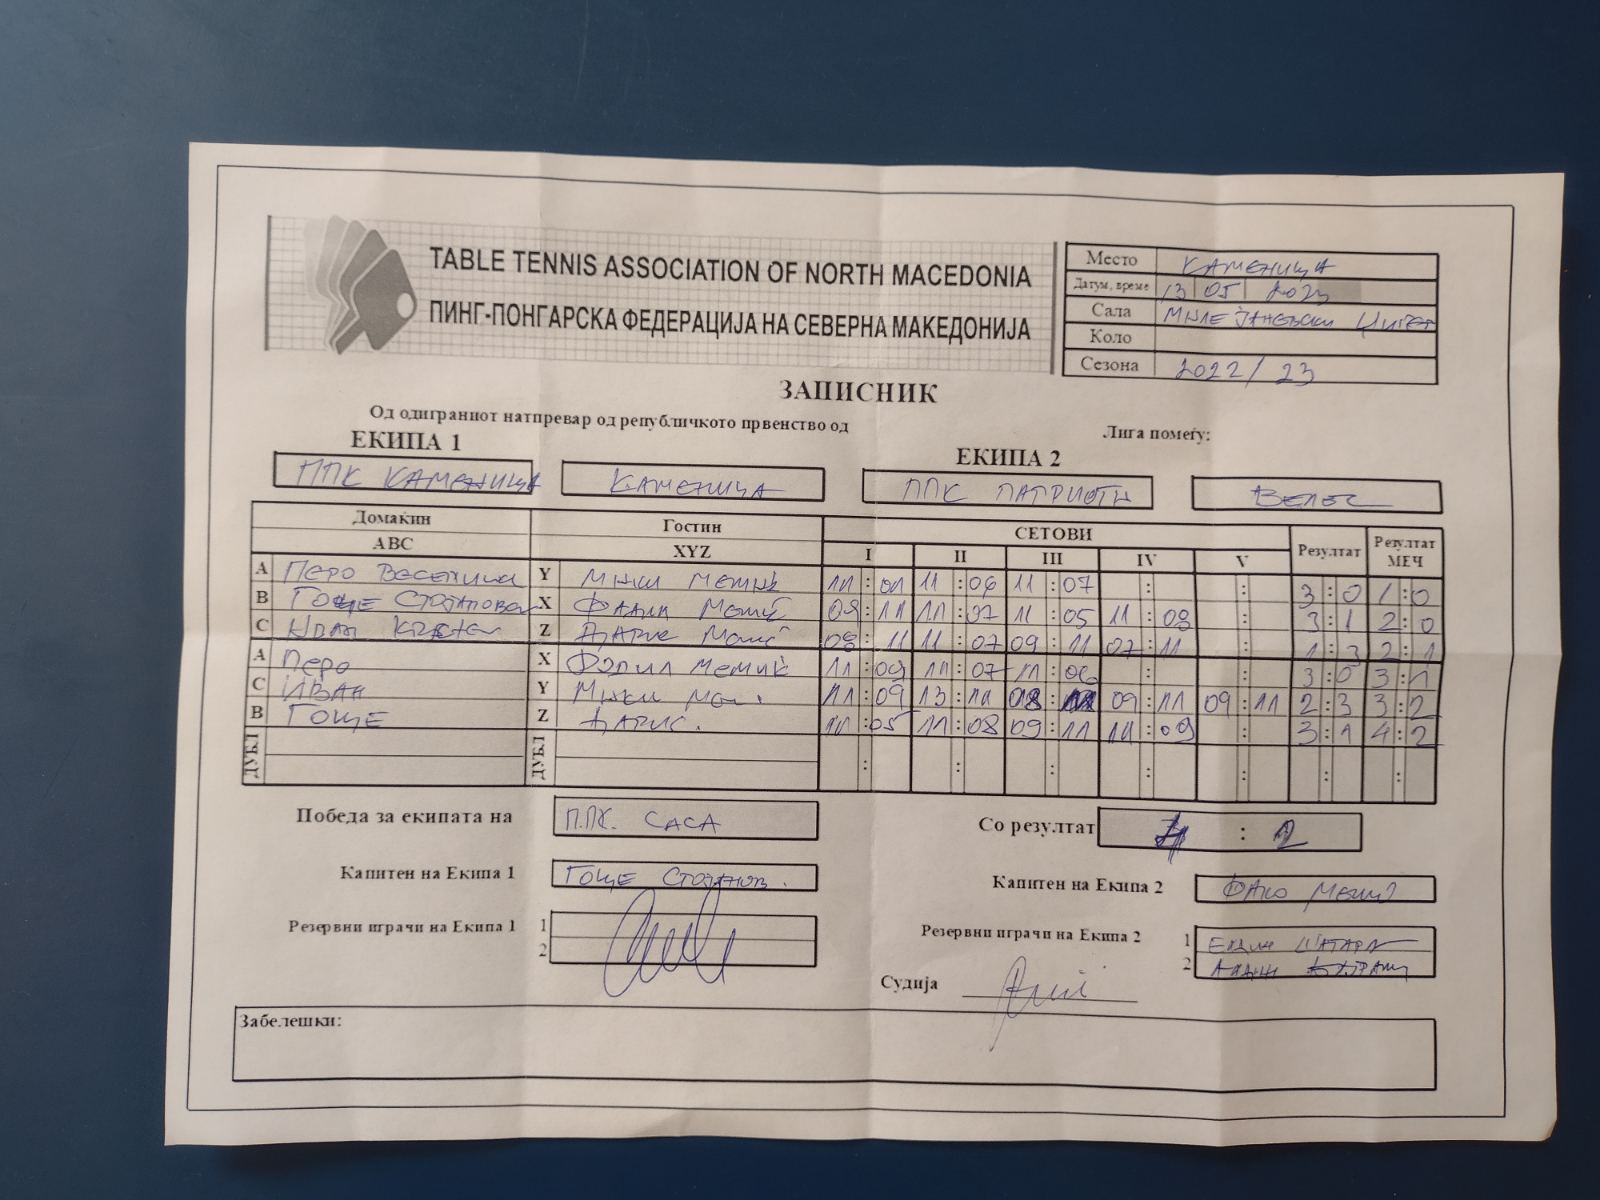 TABLE TENNIS ASSOCIATION OF NORTH MACEDONIA
ПИНГ-ПОНГАРСКА ФЕДЕРАЦИЈА НА СЕВЕРНА МАКЕДОНИЈА
Место КАМЕНИЦА
Датум, време 13 05 2023
Сала МИЛЕ ЈАНЕВСКИ
Коло
Сезона 2022/23
ЗАПИСНИК
Од одиграниот натпревар од републичкото првенство од Лига помеѓу:
ЕКИПА 1 ЕКИПА 2
ППК КАМЕНИЦА КАМЕНИЦА ППК ПАТРИОТИ ВЕЛЕС
Домаќин Гостин СЕТОВИ Резултат Резултат МЕЧ
ABC XYZ I II III IV V
A ПЕРО Y 11 : 01 11 : 06 11 : 07 : : 3 : 0 1 : 0
B ГОЦЕ X 09 : 11 11 : 07 11 : 05 11 : 08 : 3 : 1 2 : 0
C ИВАН Z 08 : 11 11 : 07 09 : 11 07 : 11 : 1 : 3 2 : 1
A ПЕРО X 11 : 09 11 : 07 11 : 06 : : 3 : 0 3 : 1
C ИВАН Y 11 : 09 13 : 11 08 : 11 09 : 11 09 : 11 2 : 3 3 : 2
B ГОЦЕ Z ДАРИС. 11 : 05 11 : 08 09 : 11 11 : 09 : 3 : 1 4 : 2
ДУБЛ ДУБЛ : : : : : : :
Победа за екипата на П.П.К. САСА Со резултат : 2
Капитен на Екипа 1 ГОЦЕ СТОЈАНОВ. Капитен на Екипа 2
Резервни играчи на Екипа 1 1 Резервни играчи на Екипа 2 1
2 2
Судија
Забелешки: